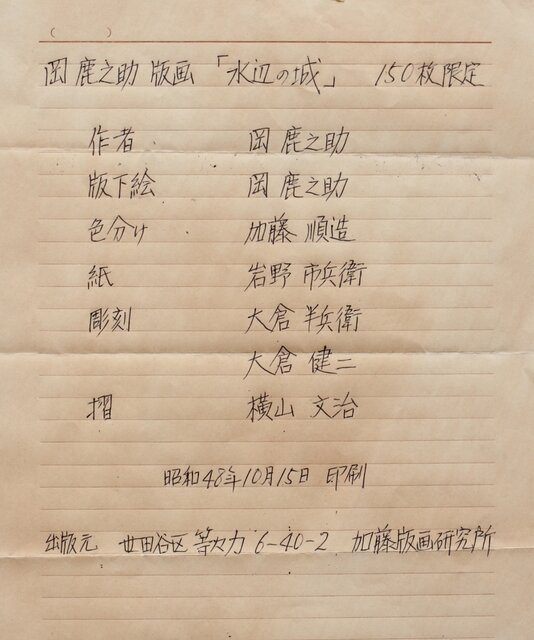 (　　)
岡 鹿之助 版画 「水辺の城」 150枚限定
作者 岡 鹿之助
版下絵 岡 鹿之助
色分け 加藤 順造
紙 岩野 市兵衛
彫刻 大倉 半兵衛
大倉 健二
摺 横山 文治
昭和48年10月15日 印刷
出版元 世田谷区 等々力 6-40-2 加藤版画研究所